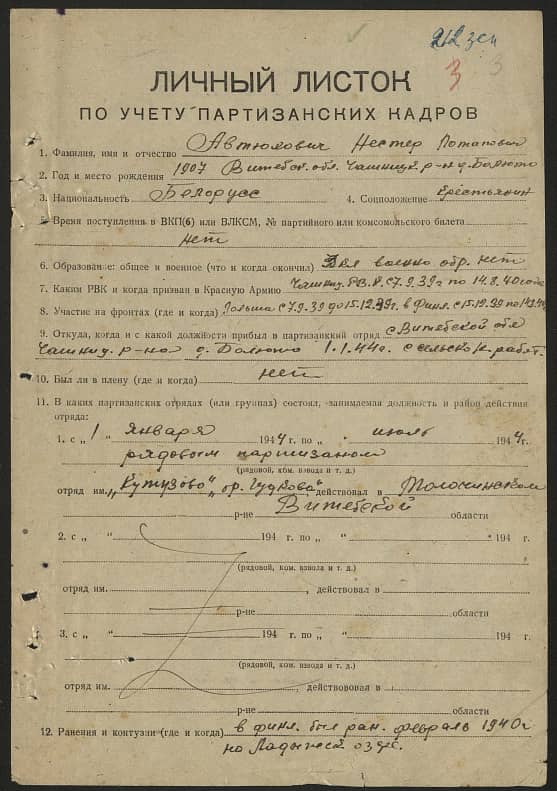 212 зсп
3 3
ЛИЧНЫЙ ЛИСТОК
ПО УЧЕТУ ПАРТИЗАНСКИХ КАДРОВ
1. Фамилия, имя и отчество Автюхович Нестер Потапович
2. Год и место рождения 1907 Витебск. обл. Чашницк. р-н д. Болюто
3. Национальность Белорусс 4. Соцположение Крестьянин
5. Время поступления в ВКП(б) или ВЛКСМ, № партийного или комсомольского билета
нет
6. Образование: общее и военное (что и когда окончил) 3 кл военно обр. нет
7. Каким РВК и когда призван в Красную Армию Чашниц. РВК с 7.9.39г по 14.8.40 года
8. Участие на фронтах (где и когда) Польша с 7.9.39 до 15.12.39г. в Финл. с 15.12.39 по
9. Откуда, когда и с какой должности прибыл в партизанский отряд с Витебской обл
Чашниц. р-на д. Болюто 1.1.44г. с сельско х. работ.
10. Был ли в плену (где и когда) нет
11. В каких партизанских отрядах (или группах) состоял, занимаемая должность и район действия
отряда:
1. с „ 1 “ января 1944 г. по „ “ июль 1944 г.
рядовым партизаном
(рядовой, ком. взвода и т. д.)
отряд им. „Кутузово“ бр. Гудкова, действовал в Толочинском
р-не Витебской области
2. с „ “ 194 г. по „ “ 194 г.
(рядовой, ком. взвода и т. д.)
отряд им. , действовал в
р-не области
3. с „ “ 194 г. по „ “ 194 г.
(рядовой, ком. взвода и т. д.)
отряд им. , действововал в
р-не области
12. Ранения и контузии (где и когда) в финл. был ран. февраль 1940г
на озере.